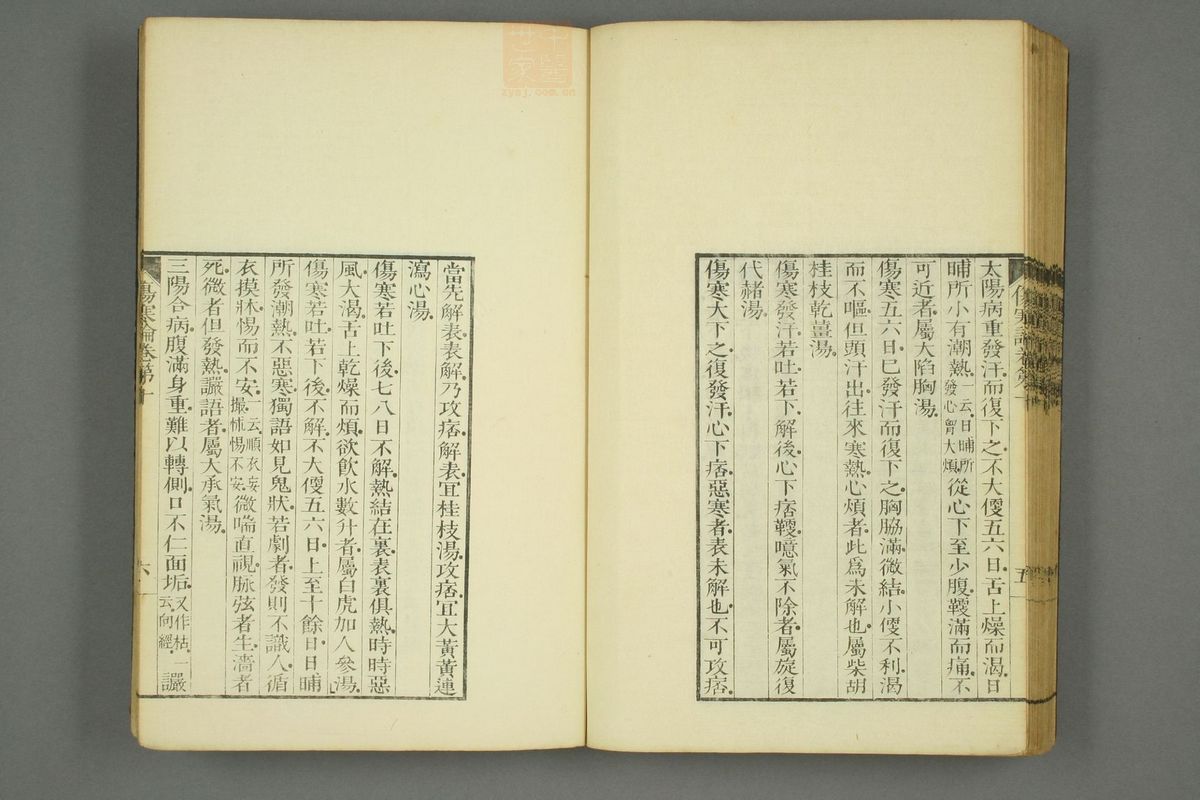 太陽病重發汗而復下之不大便五六日舌上燥而渴日
晡所小有潮熱一云日晡所發心胷大煩從心下至少腹鞕滿而痛不
可近者屬大陷胸湯
傷寒五六日已發汗而復下之胸脇滿微結小便不利渴
而不嘔但頭汗出往來寒熱心煩者此爲未解也屬柴胡
桂枝乾薑湯
傷寒發汗若吐若下解後心下痞鞕噫氣不除者屬旋復
代赭湯
傷寒大下之復發汗心下痞惡寒者表未解也不可攻痞
五
當先解表表解乃攻痞解表宜桂枝湯攻痞宜大黃黃連
瀉心湯
傷寒若吐下後七八日不解熱結在裏表裏俱熱時時惡
風大渴舌上乾燥而煩欲飲水數升者屬白虎加人參湯
傷寒若吐若下後不解不大便五六日上至十餘日日晡
所發潮熱不惡寒獨語如見鬼狀若劇者發則不識人循
衣摸牀惕而不安一云順衣妄撮怵惕不安微喘直視脉弦者生濇者
死微者但發熱讝語者屬大承氣湯
三陽合病腹滿身重難以轉側口不仁面垢又作枯一云向經讝
傷寒論卷第十
六
中醫世家
zysj.com.cn